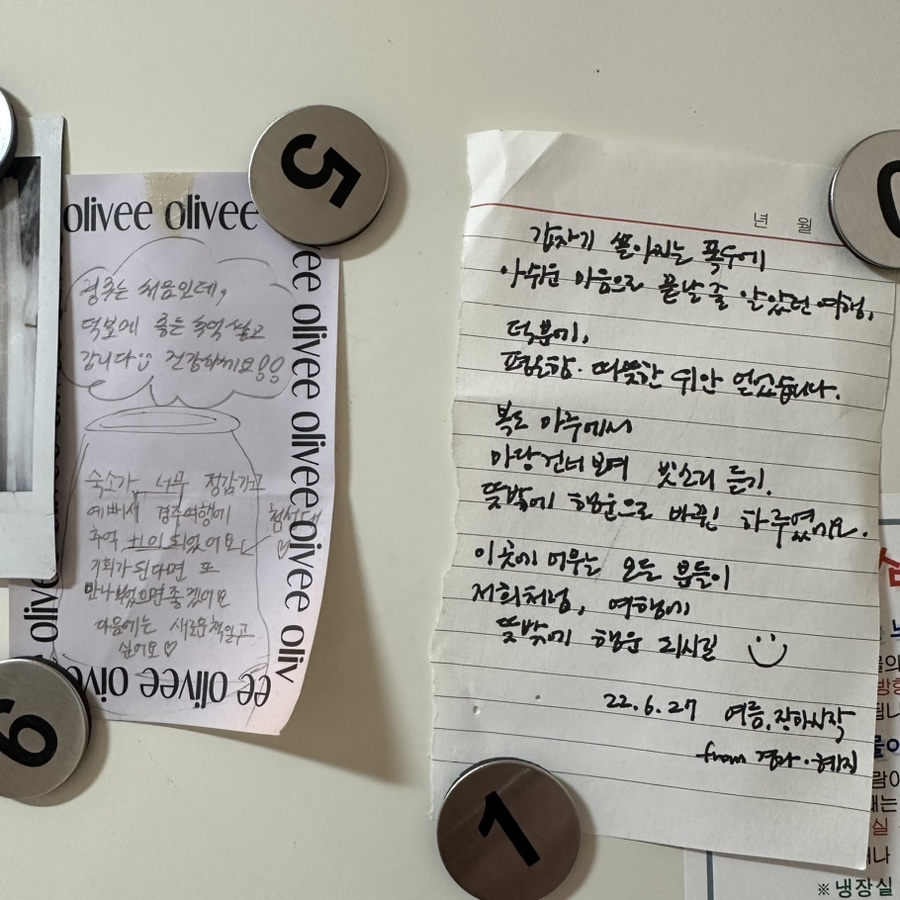 olivee olivee
경주는 처음인데,
덕분에 좋은 추억 쌓고
갑니다 건강하세요
숙소가 너무 정감가고
예뻐서 경주여행에
첨성대
추억 +1이 되었어요
기회가 된다면 또
만나뵀었으면 좋겠어요
다음에는 새로운 책 읽고
싶어요♡
ee olivee olivee olivee olivee oliv
ee olivee olivee olivee
5
6
1
0
년 월
갑자기 쏟아지는 폭우에
아쉬운 마음으로 끝날 줄 알았던 여행,
덕분에,
편안함. 따뜻한 위안 얻었습니다.
복도 마루에서
마당 건너보며 빗소리 듣기.
뜻밖에 행운으로 바뀐 하루였어요.
이곳에 머무는 모든 분들이
저희처럼, 여행에
뜻밖에 행운 되시길 :)
22.6.27 여름, 장마시작
from 경아·혜지
방향
실
※냉장실